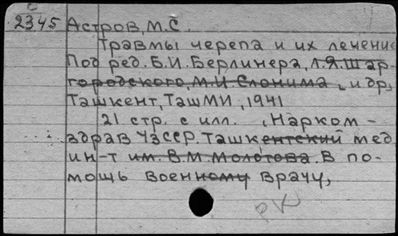 2345 Астров, М.С.
Травмы черепа и их лечение
Под ред. Б.И. Берлинера, Л.Я. Шар-
городского, М.И. Слонима, и др.
Ташкент, ТашМИ, 1941
21 стр. с илл. (Нарком-
здрав УзССР. Ташкентский мед
ин-т им. В.М. Молотова. В по-
мощь военному врачу,